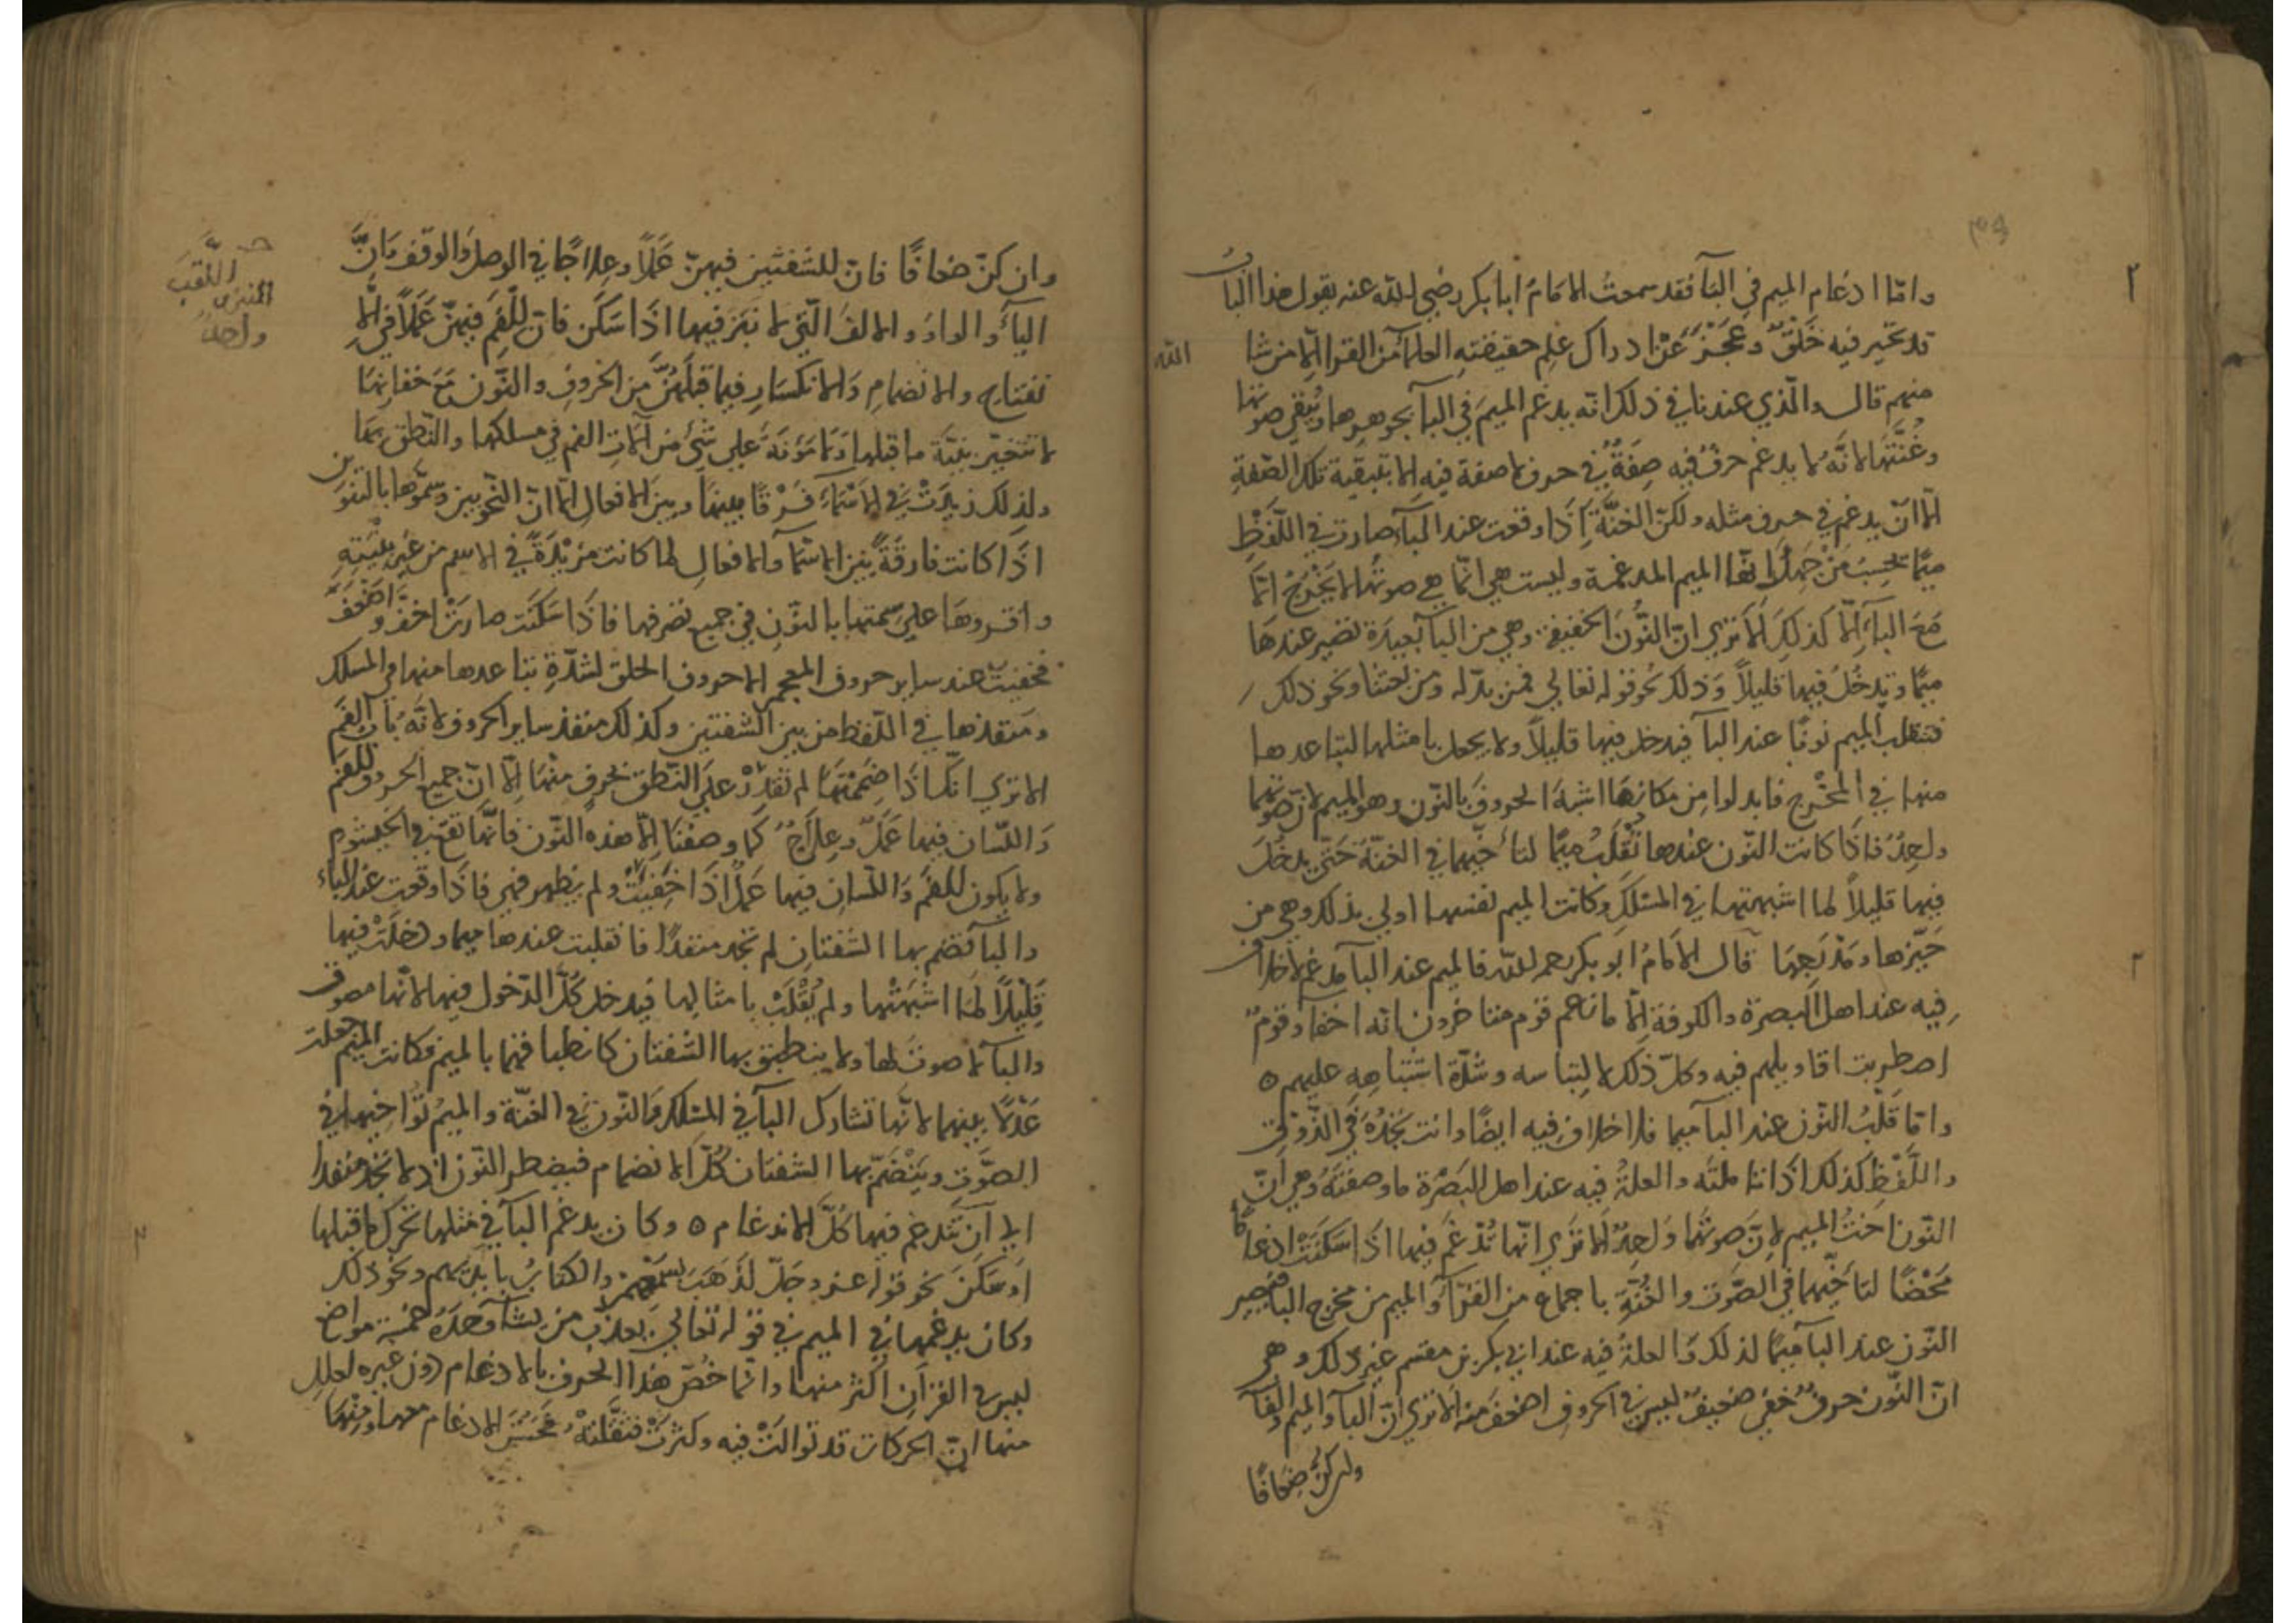 واما ادغام الميم في البآ فقد سمعتُ الامَامُ ابا بكر رضي الله عنه يقول هذا البابُ
قد تحير فيه خَلْقٌ وعَجَزَ عَنْ ادراك علِم حقيقتهِ العلمآ من القرا الّا من شا الله
منهم قال والّذي عندنا في ذلك انّه يدغم الميمَ في البآ بجوهرها ويُبقي صوتها
وغُنَّتهَا لانَّه لا يدغم حرفٌ فيه صِفَةٌ في حرف لا صفة فيه الا بتبقية تلك الصّفةِ
الّا انّ يدغم في حرف مثله ولكنّ الغنَّةَ اِذَا وقعت عند البآء صارت في اللّفْظِ
ميمًا يحْسِبُ مَنْ جَهِلَ انّها الميم المدغمة وليست هي انّما هي صوتُها لا يَخْرُجُ اِلّا
مَعَ البآءِ الّا كذلِكَ اَلا ترَي انّ النُّونَ الخفيفة وهي من البآ بعيدَة تصير عندهَا
ميمًا وتدخُلُ فيها قليلاً وَذلك نحُو قوله تعالي فمن بدّله ومن بعثنا ونحو ذلك
فتقلب الميم نونًا عند البآ فيدخل فيها قليلاً ولا يجعل با مثلها لتباعدها
منها في المخْرج فابدلوا مِن مَكانهَا اشبهَ الحروفَ بالنّون وهو الميم لانّ صوتهما
واحِدٌ فاذَا كانت النّون عندها تُقْلَبُ ميمًا لتأخّيهما في الغنّة حَتّي يدخُلَ
فيها قليلاً لما اشبهتها في المسْلكِ وكانت الميم نفسها اولي بذلك وهي من
حَيّزها ومَدْرَجهَا قال الامَامُ ابو بكر رحمه الله فالميم عند البآ مدغم لا خلاف
فيه عند اهل البصرة والكوفة الّا ما زعم قوم متاخرون انّه اخفآ وقومٌ
اضطربت اقاويلهم فيه وكلّ ذلك لالتباسه وشدّة اشتباهِهِ عليهم ه
وامّا قَلْبُ النّون عند البآ ميما فلا خلاف فيه ايضًا وانت تجدُهُ في الذّوْق
واللَّفْظ كذلك اذا تاملتَه والعلةُ فيه عند اهل البَصْرة ما وصفتَهُ وهي انّ
النّون اختُ الميم لانّ صوتُهما وَاحِدٌ الا تَري انّها تُدْغَم فيها اذا سَكَنَتْ ادغاما
مَحْضًا لتآخّيهما في الصّوت والغُنّةِ باجماع من القرّآء والميم من مخرج البآ فتصير
النّون عند البآ ميمًا لذلك وَالعلةُ فيه عند ابي بكر بن مقسم غير ذلك وهي
انّ النّون حرفٌ خفيّ ضعيفٌ ليس في الحروف اضعفُ منه الا تري انّ البآ والميم والفآ
وان كنّ ضعافًا
وان كنّ ضعافًا فانّ للشفتين فيهنّ عَمَلًا وعِلاجًا في الوصل والوقف وَانَّ
اليآءَ والواوَ والالفَ الّتي لا نَبْرَ فيها اذا سَكَن فانّ للْفَمِ فيهنَّ عَمَلًا في الا
نفتاح والانضمامِ وَالانكسَارِ فيما قبْلَهُنَّ من الحروفِ والنّون مَعَ خفائِهَا
لا تتغيّر بنيَة ما قبلها وَلا مَؤنَةَ علي شئ من آلات الفم في مسلكها والنّطق بهَا
ولذلك زيدَتْ في الاسْمَاءِ فَرْقًا بينهَا وبينَ الافعال الّا انّ النّحويين وسَمُّوها بالتنوين
اذَا كانت فارقَةً بين الاسمآء والافعالِ لما كانت مَزيْدَةً في الاسم من غَير بنْيَتِهِ
واقروهَا علَي سِمَتها بالنّونِ في جميع تصرفها فاذا سَكَنَت صارَتْ اخفّ واضْعَفَ
فخفيَت عند ساير حروف المعجم الا حروف الحلق لشدّةِ تباعدها منها في المسلك
ومنفذها في اللّفظ من بين الشّفتين وكذلك منفذ ساير الحروف لانّه بَابُ الفَم
الا تري انّك اذَا ضَمَمْتَهَا لم تَقدرْ علَي النّطق بحرفٍ منْهَا اِلّا انّ جميع الحروف للفَم
وَاللّسان فيها عَمَلٌ وعلَاجٌ كَما وصفنَا الّا هذه النّون فانّها تقع في الخيشوم
ولا يكون للفَم وَاللّسانِ فيها عَمَلٌ اذَا خَفِيَتْ ولم يظهر فهي فاذَا وقعت عند الباء
والبآ تضم بها الشّفتانِ لم تجد منفذًا فانقلبت عندها ميما ودخَلَتْ فيها
قَلِيْلاً لمَا اشْبَهَتْها ولم يُقْلَبْ با مثالها فيدخل كُلَّ الدّخول فيها لانّها مصوت
والبآ لا صوت لها ولا ينطبق بها الشّفتان كانطباقهما بالميم فكانت الميم جعلت
عَدْلًا بينهما لانّها تشارك البآ في المسْلك وَالنّون في الغنّة والميمُ تؤاخيهَا في
الصَّوت ويَنْضَمّ بها الشّفتان كُلَّ الانضمام فيضطر النّون اذ لا تجد منفذا
الي اَن تَندغم فيها كُلّ الاندغام ه وكان يدغم البآ في مثلها تحرك ما قبلها
اَو سَكَنَ نحو قوله عز وجَلّ لذَهَبَ بسَمْعِهِم والكتابُ بايْدِيهم ونحو ذلك
وكان يدغمها في الميم في قوله تعالي يعذب من يشآ وَحْدَهُ خمسة مواضع
ليس في القرآن اكثر منها وانّما خُصّ هذا الحرف بالادغام دون غيره لعلل
منها انّ الحركات قد توالتْ فيه وكثرتْ فثقَّلتْهُ فحَسُنَ الادغام معها ومنْهَا
اللّقب
واحد